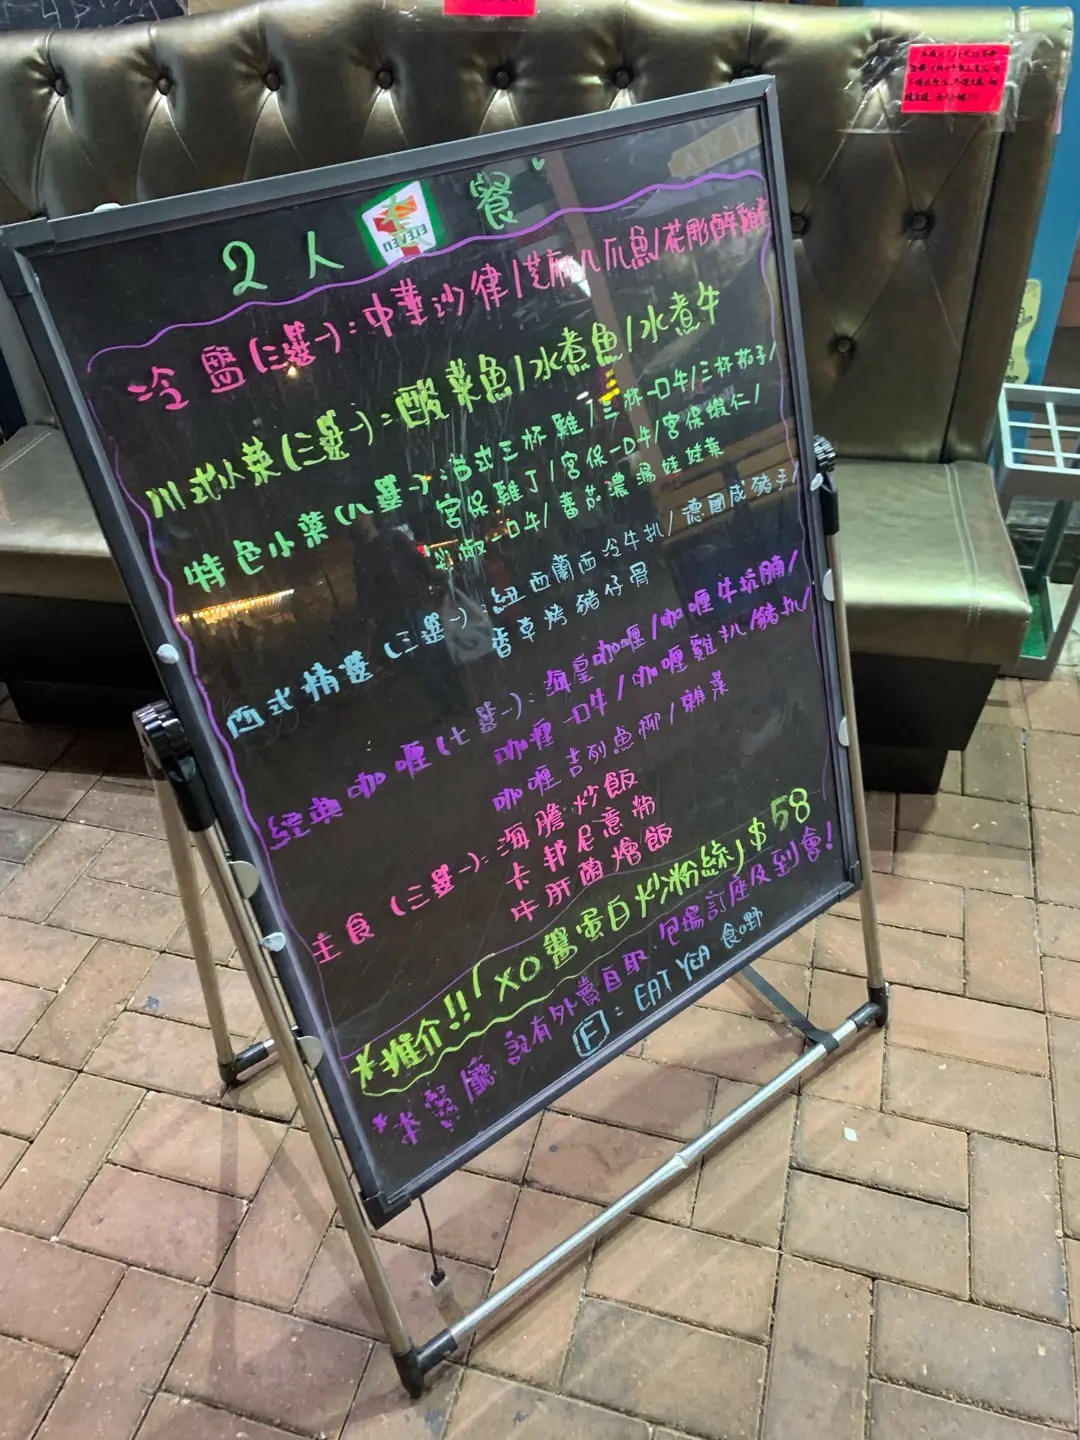 2人 餐
冷盤(三選一)：中華沙律/芝麻八爪魚/花彫醉雞
川式小菜(三選一)：酸菜魚/水煮魚/水煮牛
特色小菜(八選一)：台式三杯雞/三杯一口牛/三杯茄子/
宮保雞丁/宮保一口牛/宮保蝦仁/
一口牛/蕃茄濃湯娃娃菜
西式精選(三選一)：紐西蘭西冷牛扒/德國咸豬手/
香草烤豬仔骨
經典咖喱(七選一)：海皇咖喱/咖喱牛坑腩/
咖喱一口牛/咖喱雞扒/豬扒/
咖喱吉列魚柳/雜菜
主食(三選一)：海膽炒飯
卡邦尼意粉
牛肝菌燴飯
*推介!! XO醬蛋白炒粉絲 $58
**餐廳設有外賣自取 包場訂座及到會!
F：EAT YEA 食嘢
ELEVEN